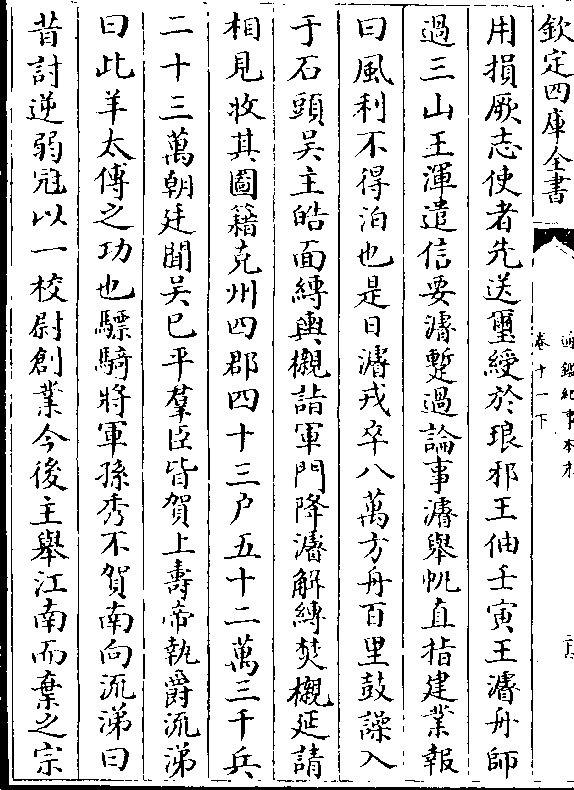 欽定四庫全書
通鑑紀事本末
卷十一下
用損厥志使者先送璽綬於琅邪王伷壬寅王濬舟師
過三山王渾遣信要濬蹔過論事濬舉帆直指建業報
曰風利不得泊也是日濬戎卒八萬方舟百里鼓譟入
于石頭吳主皓面縛輿櫬詣軍門降濬解縛焚櫬延請
相見收其圖籍克州四郡四十三户五十二萬三千兵
二十三萬朝廷聞吳已平羣臣皆賀上壽帝執爵流涕
曰此羊太傅之功也驃騎將軍孫秀不賀南向流涕曰
昔討逆弱冠以一校尉創業今後主舉江南而棄之宗